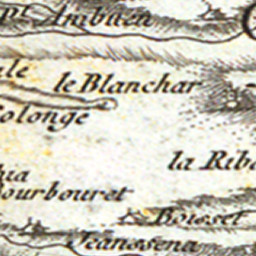 Pt. Ambuen
ale
le Blanchar
Colonge
la Riba
hia
ourbouret
Boisset
Jeanssena